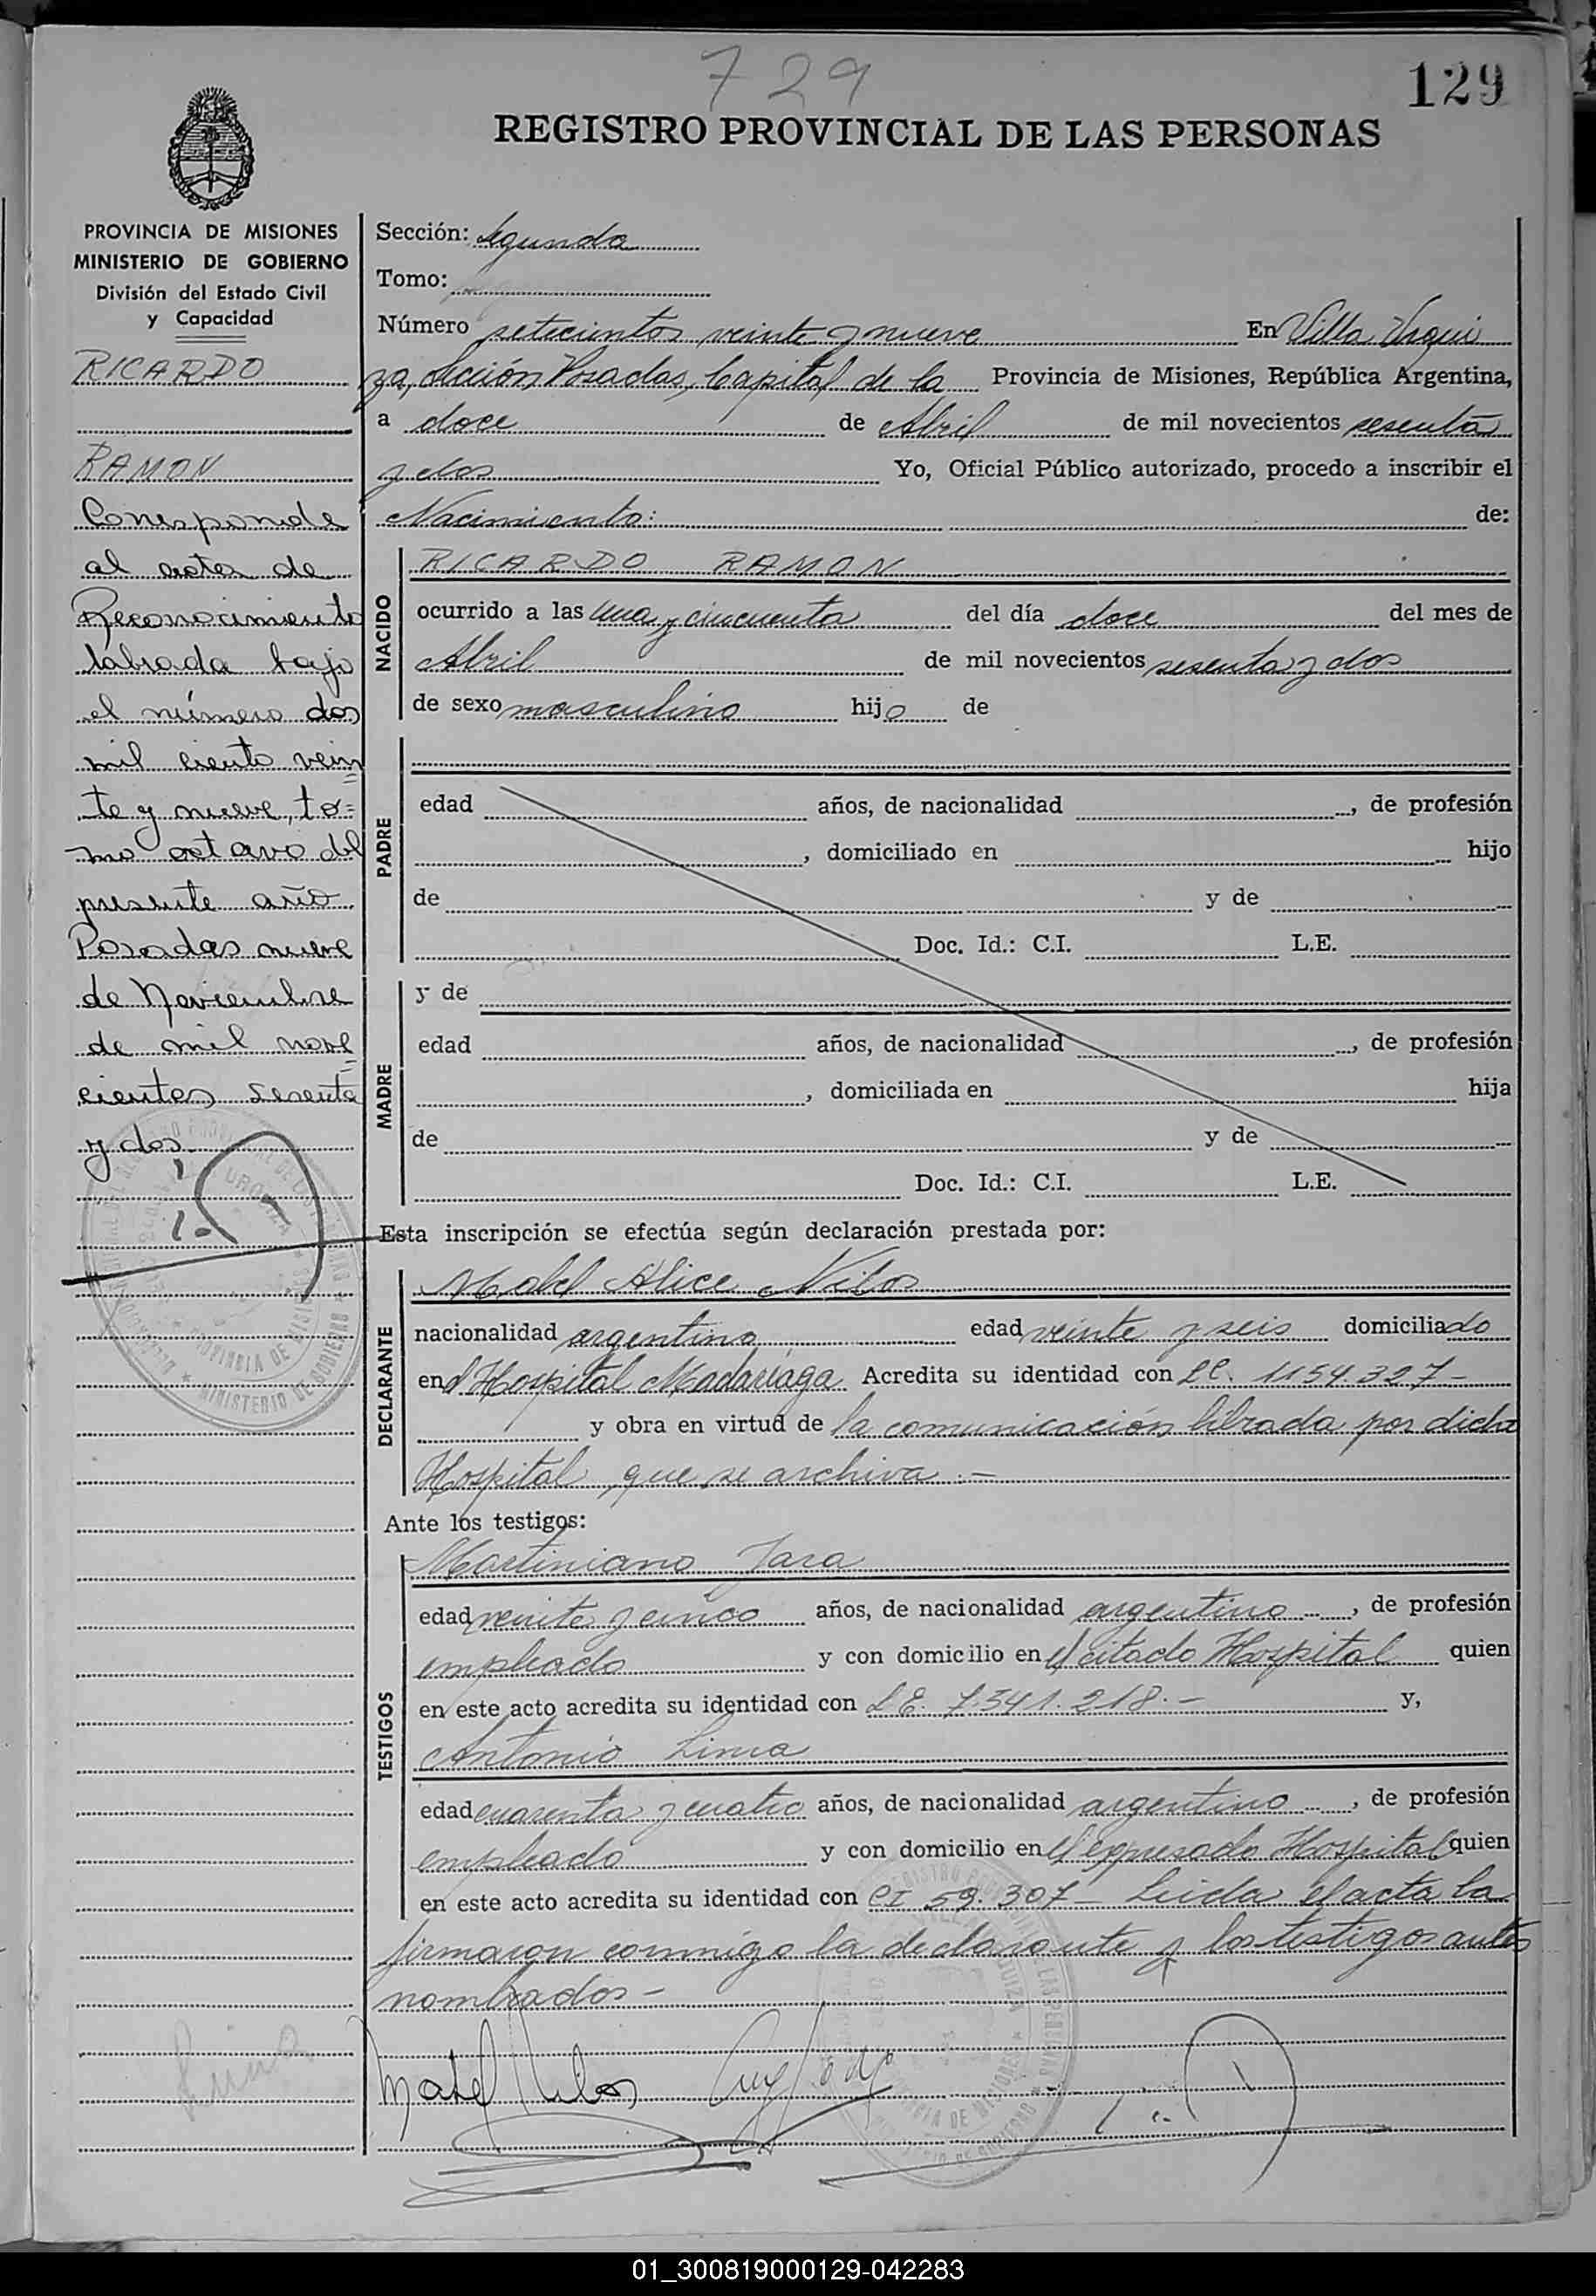 729
129
REGISTRO PROVINCIAL DE LAS PERSONAS
PROVINCIA DE MISIONES
MINISTERIO DE GOBIERNO
División del Estado Civil
y Capacidad
RICARDO
RAMON
Corresponde
al acta de
Reconocimiento
labrada bajo
el número dos
mil ciento vein
te y nueve, to=
mo octavo del
presente año
Posadas nueve
de Noviembre
de mil nove
cientos sesenta
y dos.
Sección: Segunda
Tomo:
Número setecientos veinte y nueve En Villa Urqui
za, Sección Posadas, Capital de la Provincia de Misiones, República Argentina,
a doce de Abril de mil novecientos sesenta
y dos Yo, Oficial Público autorizado, procedo a inscribir el
Nacimiento: de:
NACIDO
RICARDO RAMON
ocurrido a las una y cincuenta del día doce del mes de
Abril de mil novecientos sesenta y dos
de sexo masculino hijo de
PADRE
edad años, de nacionalidad , de profesión
, domiciliado en hijo
de y de
Doc. Id.: C.I. L.E.
MADRE
y de
edad años, de nacionalidad , de profesión
, domiciliada en hija
de y de
Doc. Id.: C.I. L.E.
Esta inscripción se efectúa según declaración prestada por:
DECLARANTE
Mabel Alice Nilos
nacionalidad argentina edad veinte y seis domiciliado
en el Hospital Madariaga Acredita su identidad con LC. 1154.327-
y obra en virtud de la comunicación librada por dicho
Hospital, que se archiva.-
Ante los testigos:
TESTIGOS
Martiniano Jara
edad veinte y cinco años, de nacionalidad argentino , de profesión
empleado y con domicilio en el citado Hospital quien
en este acto acredita su identidad con L E. 7.541.218.- y,
Antonio Lima
edad cuarenta y cuatro años, de nacionalidad argentino , de profesión
empleado y con domicilio en el expresado Hospital quien
en este acto acredita su identidad con CI 59.307- Leida el acta la
firmaron conmigo la declarante y los testigos antes
nombrados-
Mabel Nilos
01_300819000129-042283